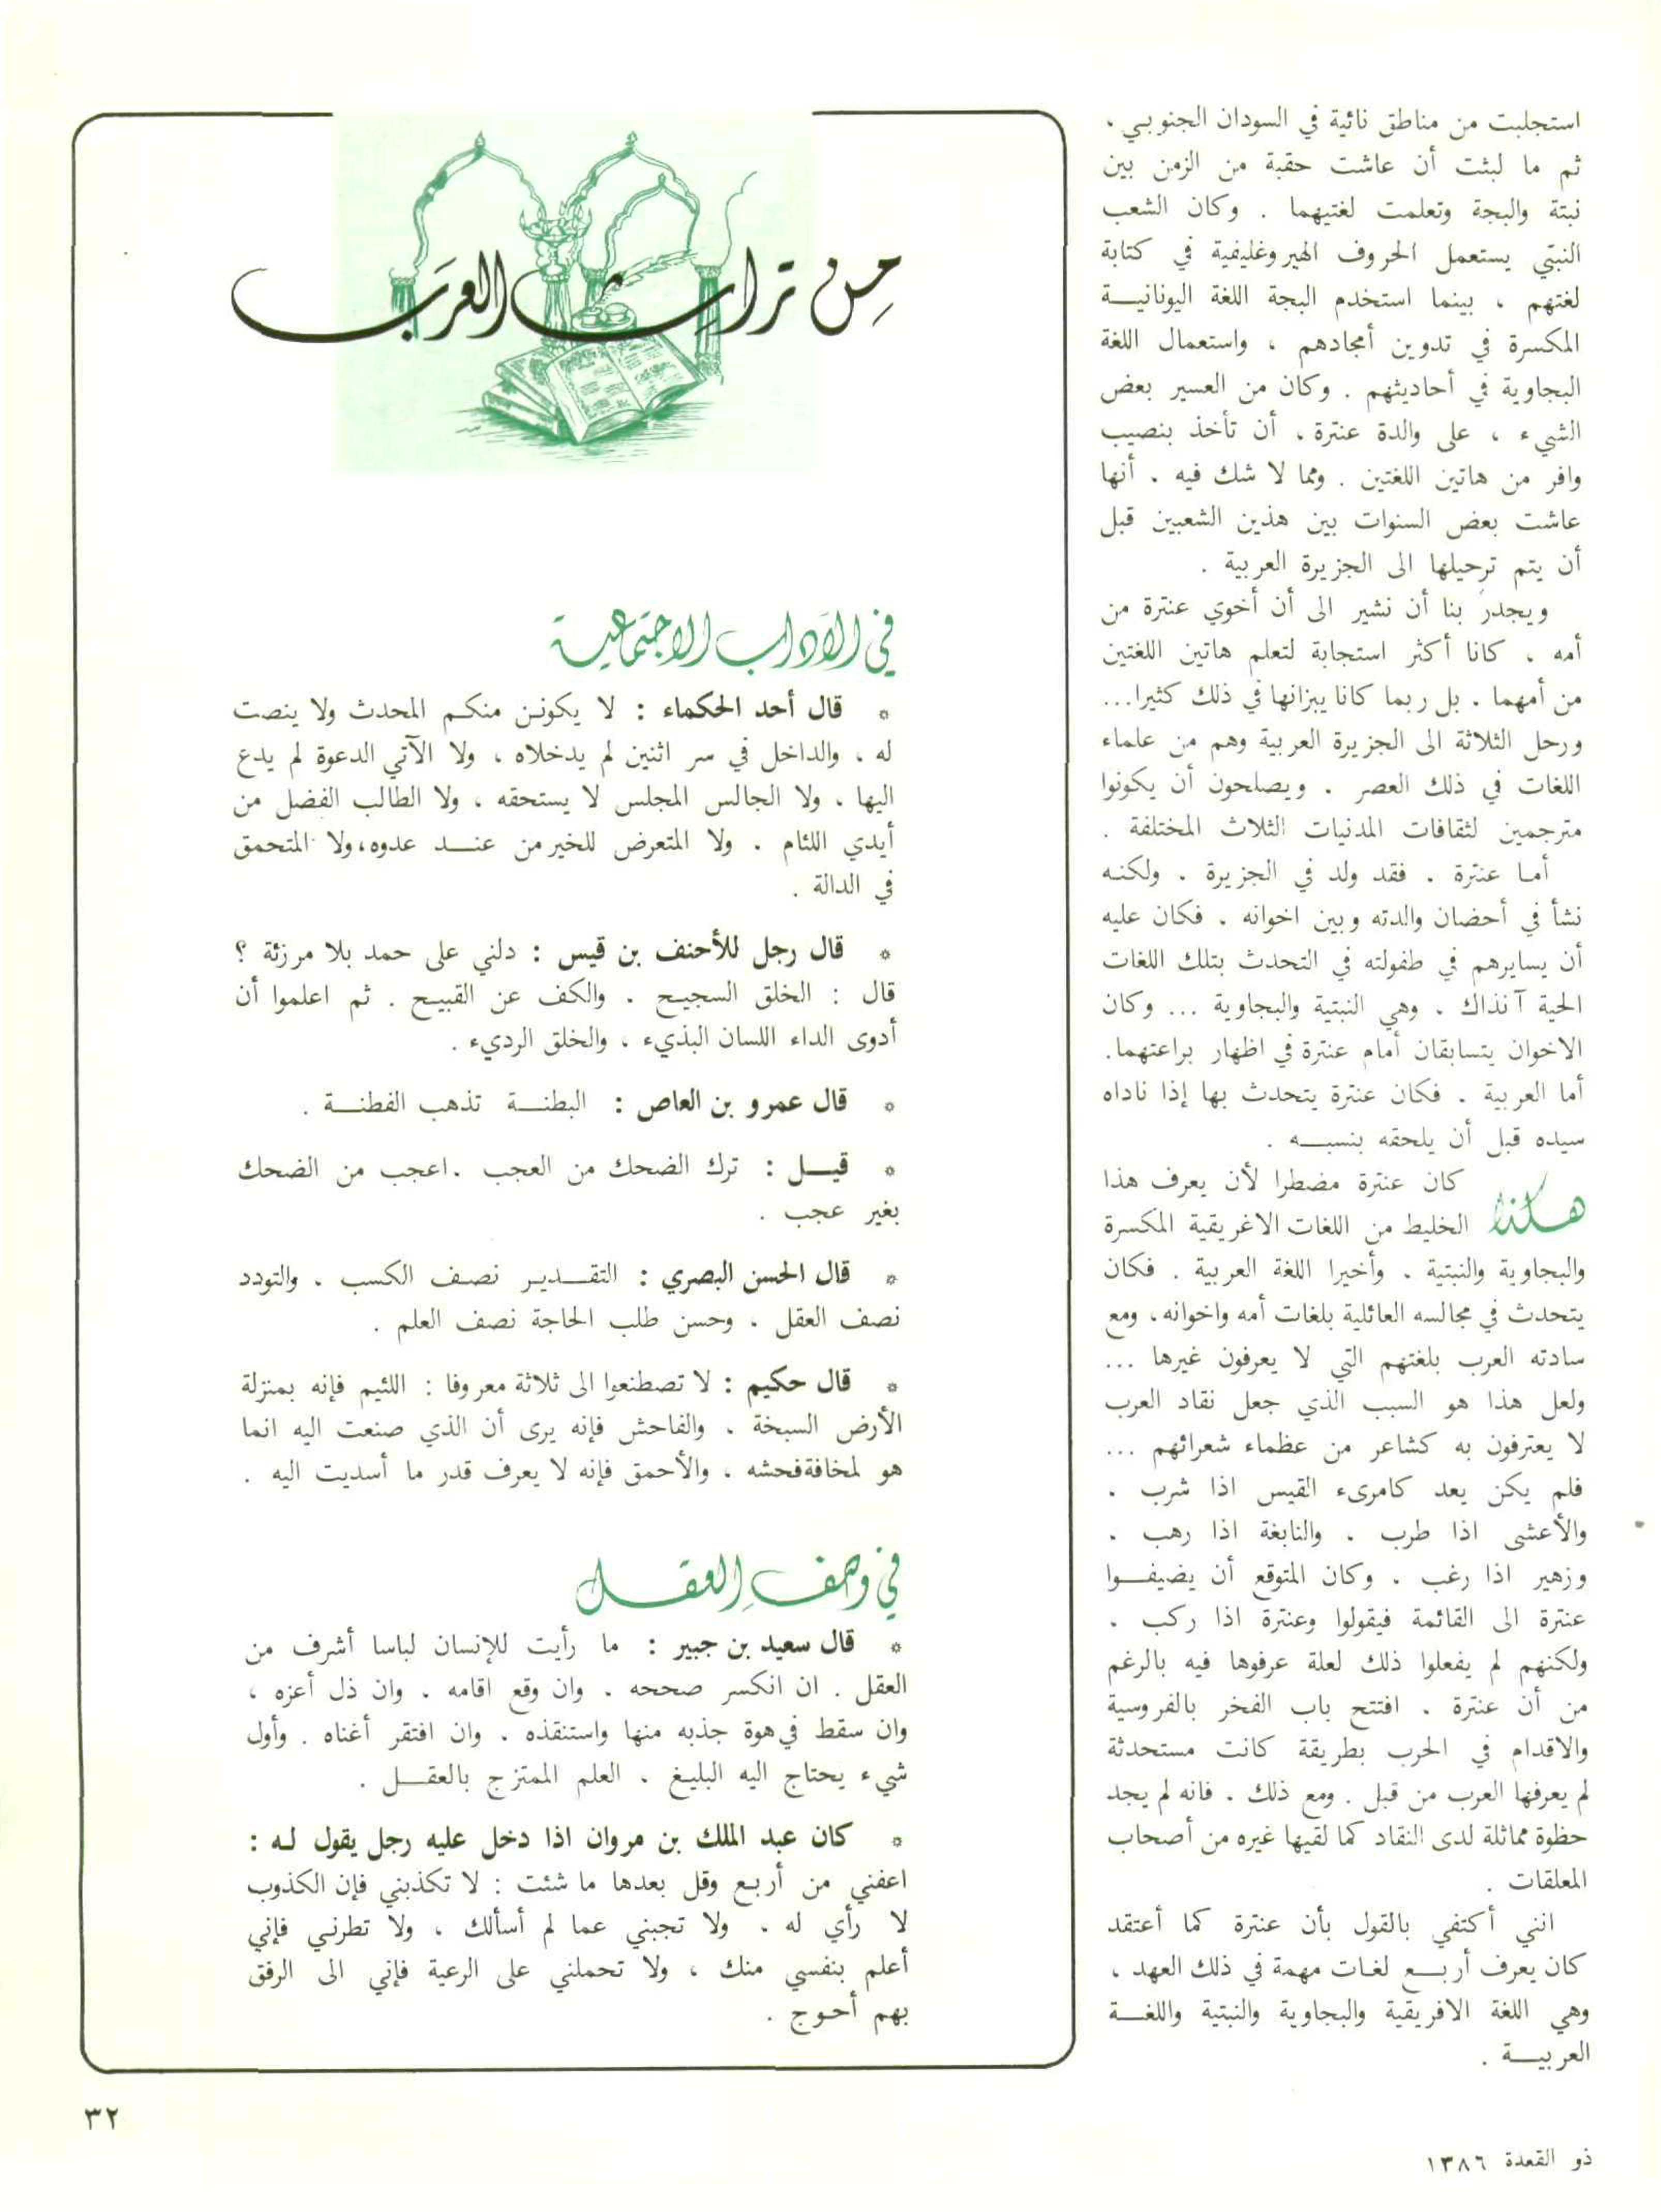 استجلبت من مناطق نائية في السودان الجنوبي ،
ثم ما لبثت أن عاشت حقبة من الزمن بين
نبتة والبجة وتعلمت لغتيهما . وكان الشعب
النبتي يستعمل الحروف الهيروغليفية في كتابة
لغتهم ، بينما استخدم البجة اللغة اليونانيـة
المكسرة في تدوين أمجادهم ، واستعمال اللغة
البجاوية في أحاديثهم . وكان من العسير بعض
الشيء ، على والدة عنترة ، أن تأخذ بنصيب
وافر من هاتين اللغتين . ومما لا شك فيه ، أنها
عاشت بعض السنوات بين هذين الشعبين قبل
أن يتم ترحيلها الى الجزيرة العربية .
ويجدر بنا أن نشير الى أن أخوي عنترة من
أمه ، كانا أكثر استجابة لتعلم هاتين اللغتين
من أمهما . بل ربما كانا يبزانها في ذلك كثيرا...
ورحل الثلاثة الى الجزيرة العربية وهم من علماء
اللغات في ذلك العصر . ويصلحون أن يكونوا
مترجمين لثقافات المدنيات الثلاث المختلفة .
أما عنترة . فقد ولد في الجزيرة . ولكنه
نشأ في أحضان والدته وبين اخوانه . فكان عليه
أن يسايرهم في طفولته في التحدث بتلك اللغات
الحية آنذاك . وهي النبتية والبجاوية ... وكان
الاخوان يتسابقان أمام عنترة في اظهار براعتهما.
أما العربية . فكان عنترة يتحدث بها إذا ناداه
سيده قبل أن يلحقه بنسبـه .
هكذا كان عنترة مضطرا لأن يعرف هذا
الخليط من اللغات الاغريقية المكسرة
والبجاوية والنبتية . وأخيرا اللغة العربية . فكان
يتحدث في مجالسه العائلية بلغات أمه واخوانه، ومع
سادته العرب بلغتهم التي لا يعرفون غيرها ...
ولعل هذا هو السبب الذي جعل نقاد العرب
لا يعترفون به كشاعر من عظماء شعرائهم ...
فلم يكن يعد كامرىء القيس اذا شرب .
والأعشى اذا طرب . والنابغة اذا رهب .
وزهير اذا رغب . وكان المتوقع أن يضيفـوا
عنترة الى القائمة فيقولوا وعنترة اذا ركب .
ولكنهم لم يفعلوا ذلك لعلة عرفوها فيه بالرغم
من أن عنترة . افتتح باب الفخر بالفروسية
والاقدام في الحرب بطريقة كانت مستحدثة
لم يعرفها العرب من قبل . ومع ذلك . فانه لم يجد
حظوة مماثلة لدى النقاد كما لقيها غيره من أصحاب
المعلقات .
انني أكتفي بالقول بأن عنترة كما أعتقد
كان يعرف أربـع لغات مهمة في ذلك العهد ،
وهي اللغة الافريقية والبجاوية والنبتية واللغـة
العربيـة .
من تراث العرب
في الآداب الاجتماعية
* قال أحد الحكماء : لا يكونن منكم المحدث ولا ينصت
له ، والداخل في سر اثنين لم يدخلاه ، ولا الآتي الدعوة لم يدع
اليها ، ولا الجالس المجلس لا يستحقه ، ولا الطالب الفضل من
أيدي اللئام . ولا المتعرض للخير من عنـد عدوه، ولا المتحمق
في الدالة .
* قال رجل للأحنف بن قيس : دلني على حمد بلا مرزئة ؟
قال : الخلق السجيح . والكف عن القبيح . ثم اعلموا أن
أدوى الداء اللسان البذيء ، والخلق الرديء .
* قال عمرو بن العاص : البطنـة تذهب الفطنـة .
* قيـل : ترك الضحك من العجب . اعجب من الضحك
بغير عجب .
* قال الحسن البصري : التقـدير نصف الكسب . والتودد
نصف العقل . وحسن طلب الحاجة نصف العلم .
* قال حكيم : لا تصطنعوا الى ثلاثة معروفا : اللئيم فإنه بمنزلة
الأرض السبخة ، والفاحش فإنه يرى أن الذي صنعت اليه انما
هو لمخافة فحشه ، والأحمق فإنه لا يعرف قدر ما أسديت اليه .
في وصف العقـل
* قال سعيد بن جبير : ما رأيت للإنسان لباسا أشرف من
العقل . ان انكسر صححه . وان وقع اقامه . وان ذل أعزه ،
وان سقط في هوة جذبه منها واستنقذه . وان افتقر أغناه . وأول
شيء يحتاج اليه البليغ . العلم الممتزج بالعقـل .
* كان عبد الملك بن مروان اذا دخل عليه رجل يقول له :
اعفني من أربع وقل بعدها ما شئت : لا تكذبني فإن الكذوب
لا رأي له . ولا تجبني عما لم أسألك ، ولا تطرني فإني
أعلم بنفسي منك ، ولا تحملني على الرعية فإني الى الرفق
بهم أحوج .
٣٢
ذو القعدة ١٣٨٦